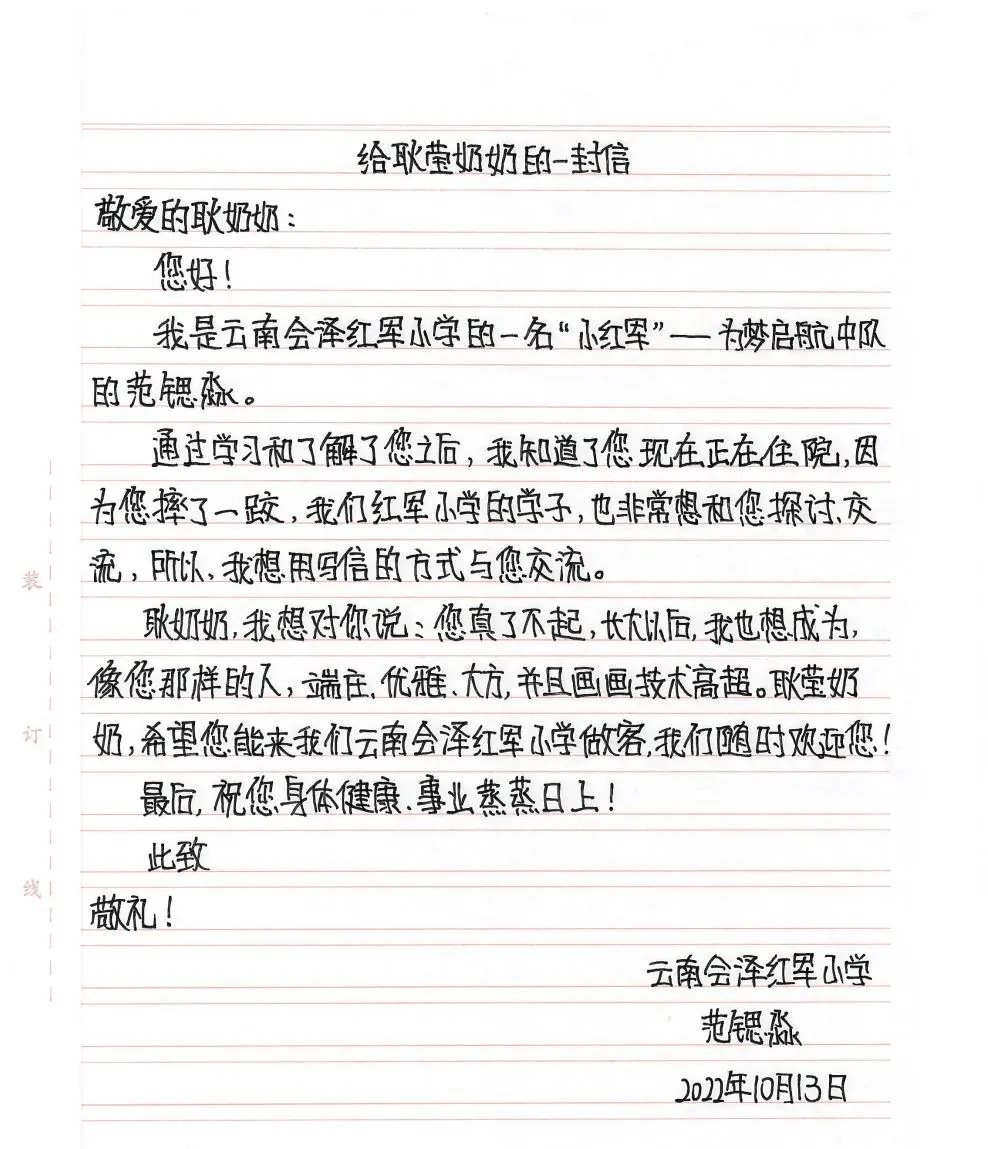 给耿莹奶奶的一封信
敬爱的耿奶奶：
您好！
我是云南会泽红军小学的一名“小红军”——为梦启航中队
的范锶淼。
通过学习和了解了您之后，我知道了您现在正在住院，因
为您摔了一跤，我们红军小学的学子，也非常想和您探讨、交
流，所以，我想用写信的方式与您交流。
耿奶奶，我想对你说：您真了不起，长大以后，我也想成为，
像您那样的人，端庄、优雅、大方，并且画画技术高超。耿莹奶
奶，希望您能来我们云南会泽红军小学做客，我们随时欢迎您！
最后，祝您身体健康、事业蒸蒸日上！
此致
敬礼！
云南会泽红军小学
范锶淼
2022年10月13日
装
订
线